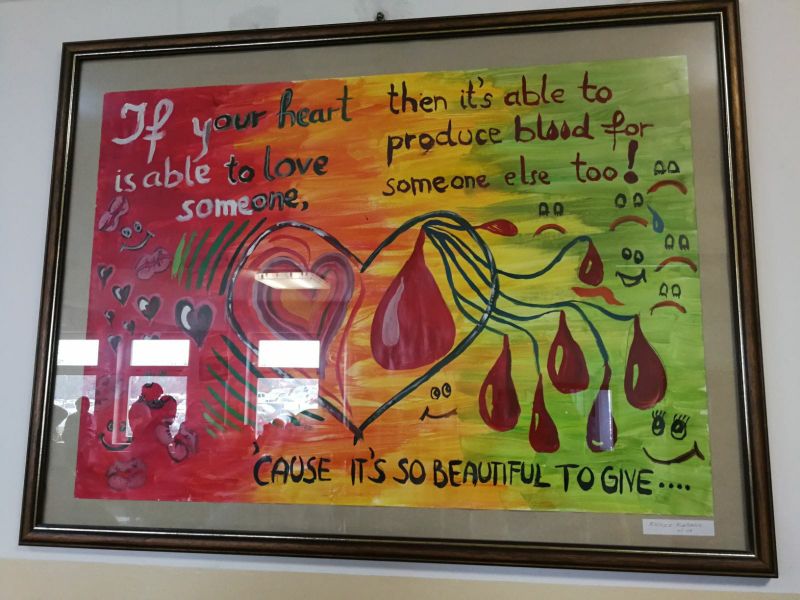 If your heart
is able to love
someone,
then it's able to
produce blood for
someone else too!
'CAUSE IT'S SO BEAUTIFUL TO GIVE....